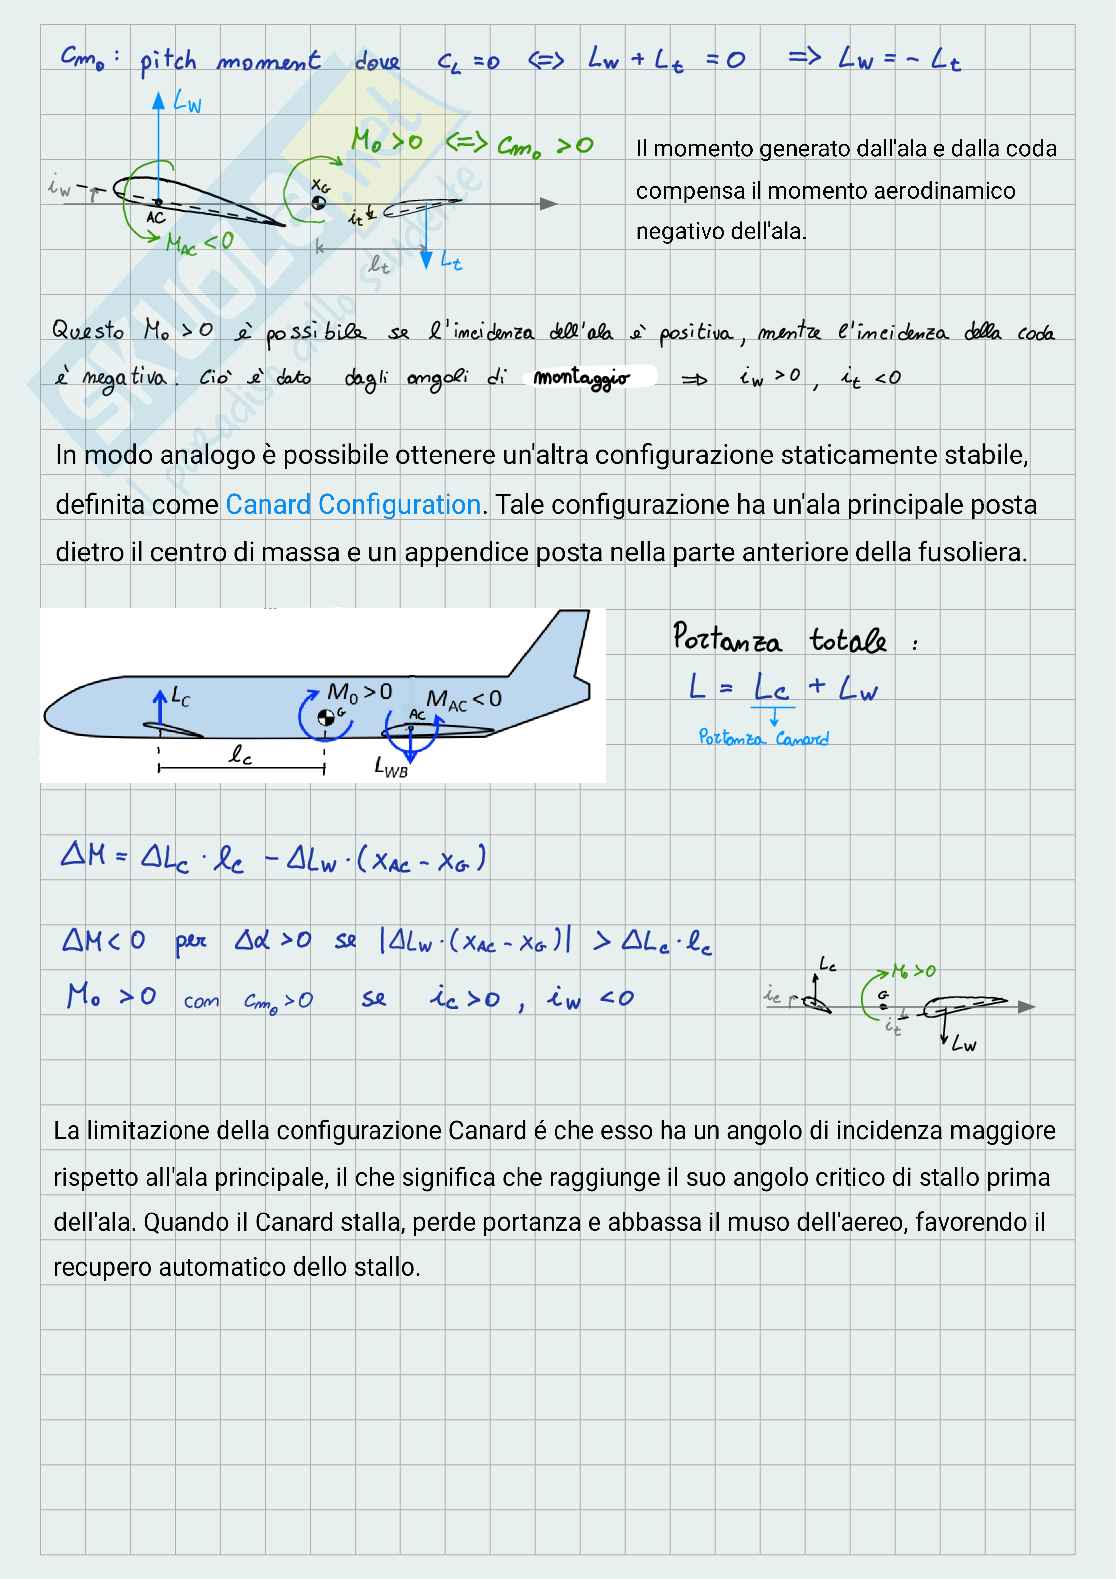 Cm₀ : pitch moment dove C_L = 0 <=> Lw + Lt = 0 => Lw = - Lt
Lw
M₀ > 0 <=> Cm₀ > 0
Il momento generato dall'ala e dalla coda
compensa il momento aerodinamico
negativo dell'ala.
iw
AC
M_AC < 0
X_G
it
lt
Lt
Questo M₀ > 0 è possibile se l'incidenza dell'ala è positiva, mentre l'incidenza della coda
è negativa. Ciò è dato dagli angoli di montaggio => iw > 0 , it < 0
In modo analogo è possibile ottenere un'altra configurazione staticamente stabile,
definita come Canard Configuration. Tale configurazione ha un'ala principale posta
dietro il centro di massa e un appendice posta nella parte anteriore della fusoliera.
Portanza totale :
L = Lc + Lw
Portanza Canard
Lc
M₀ > 0
M_AC < 0
G
AC
lc
L_WB
ΔM = ΔLc · lc - ΔLw · (X_AC - X_G)
ΔM < 0 per Δα > 0 se |ΔLw · (X_AC - X_G)| > ΔLc · lc
M₀ > 0 con Cm₀ > 0 se ic > 0 , iw < 0
Lc
M₀ > 0
ic
G
it
Lw
La limitazione della configurazione Canard é che esso ha un angolo di incidenza maggiore
rispetto all'ala principale, il che significa che raggiunge il suo angolo critico di stallo prima
dell'ala. Quando il Canard stalla, perde portanza e abbassa il muso dell'aereo, favorendo il
recupero automatico dello stallo.
SKUOLA.net
il paradiso dello studente